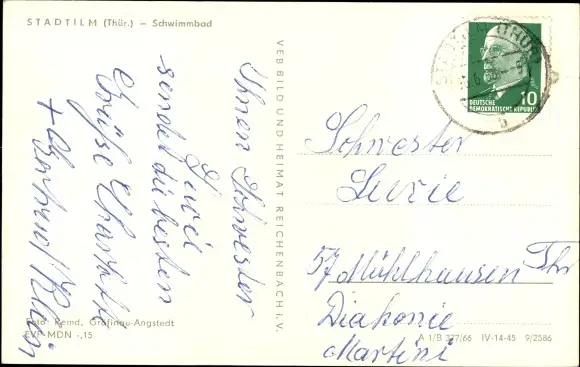 STADTILM (Thür.) – Schwimmbad
Ihnen Schwester
Luzie
sendet die besten
Grüße Charlotte
+ Gertrud Klein
Foto: Remd, Gräfinau-Angstedt
EVP MDN -,15
VEB BILD UND HEIMAT REICHENBACH i. V.
10
DEUTSCHE
DEMOKRATISCHE REPUBLIK
b
Schwester
Luzie
57 Mühlhausen Thr
Diakonie
Martini
A 1/B 377/66 IV-14-45 9/2586